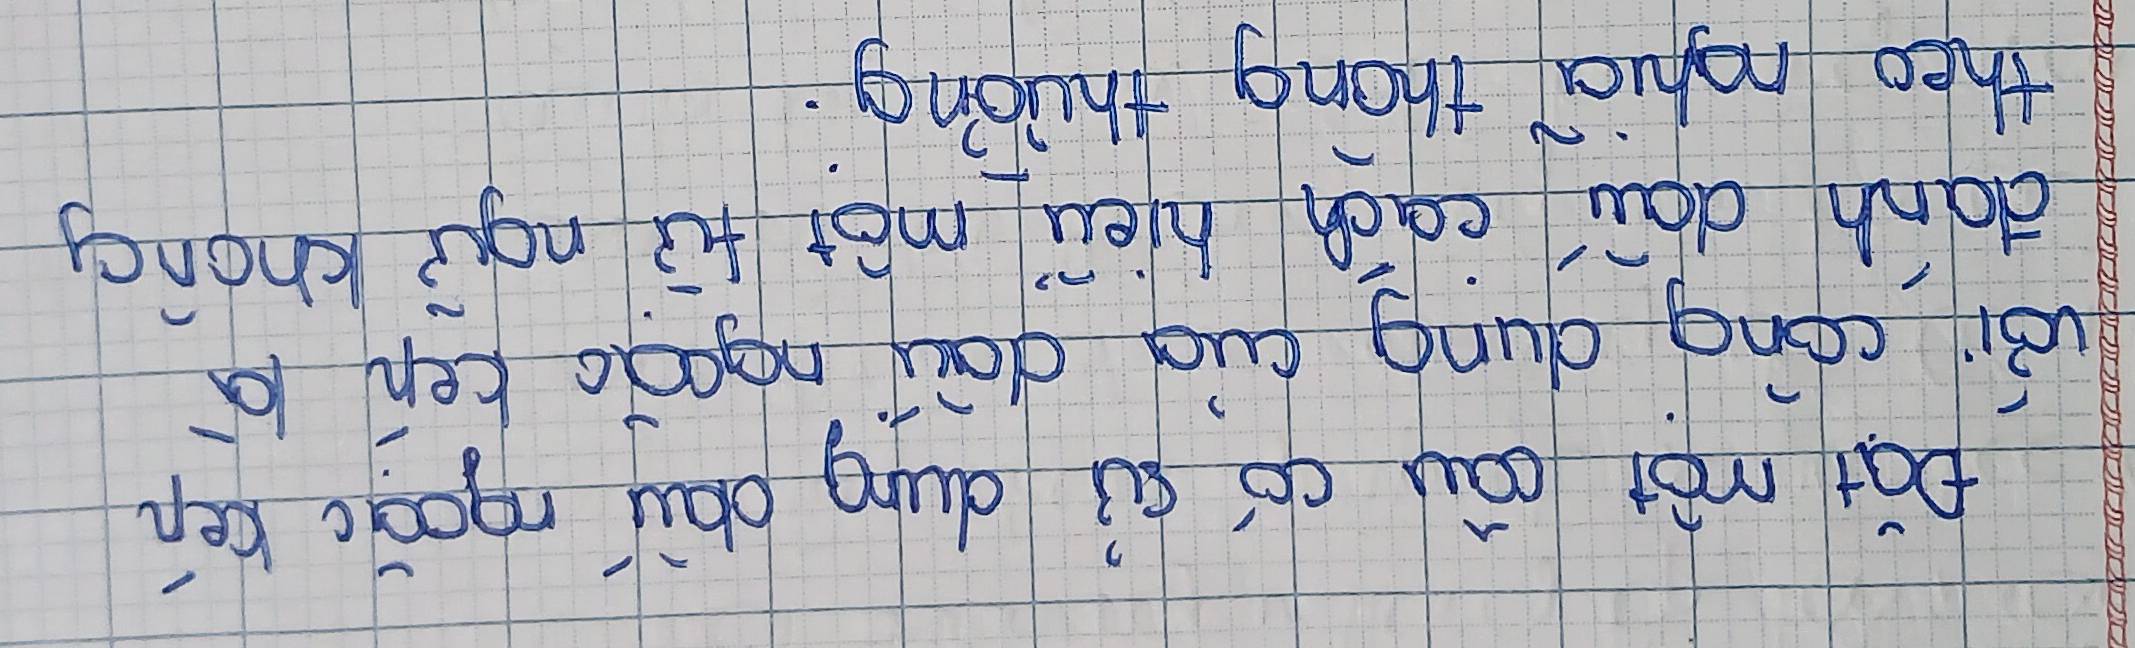 Đặt một câu có sử dụng dấu ngoặc kép
với công dụng của dấu ngoặc kép là
đánh dấu cách hiểu một từ ngữ không
theo nghĩa thông thường.